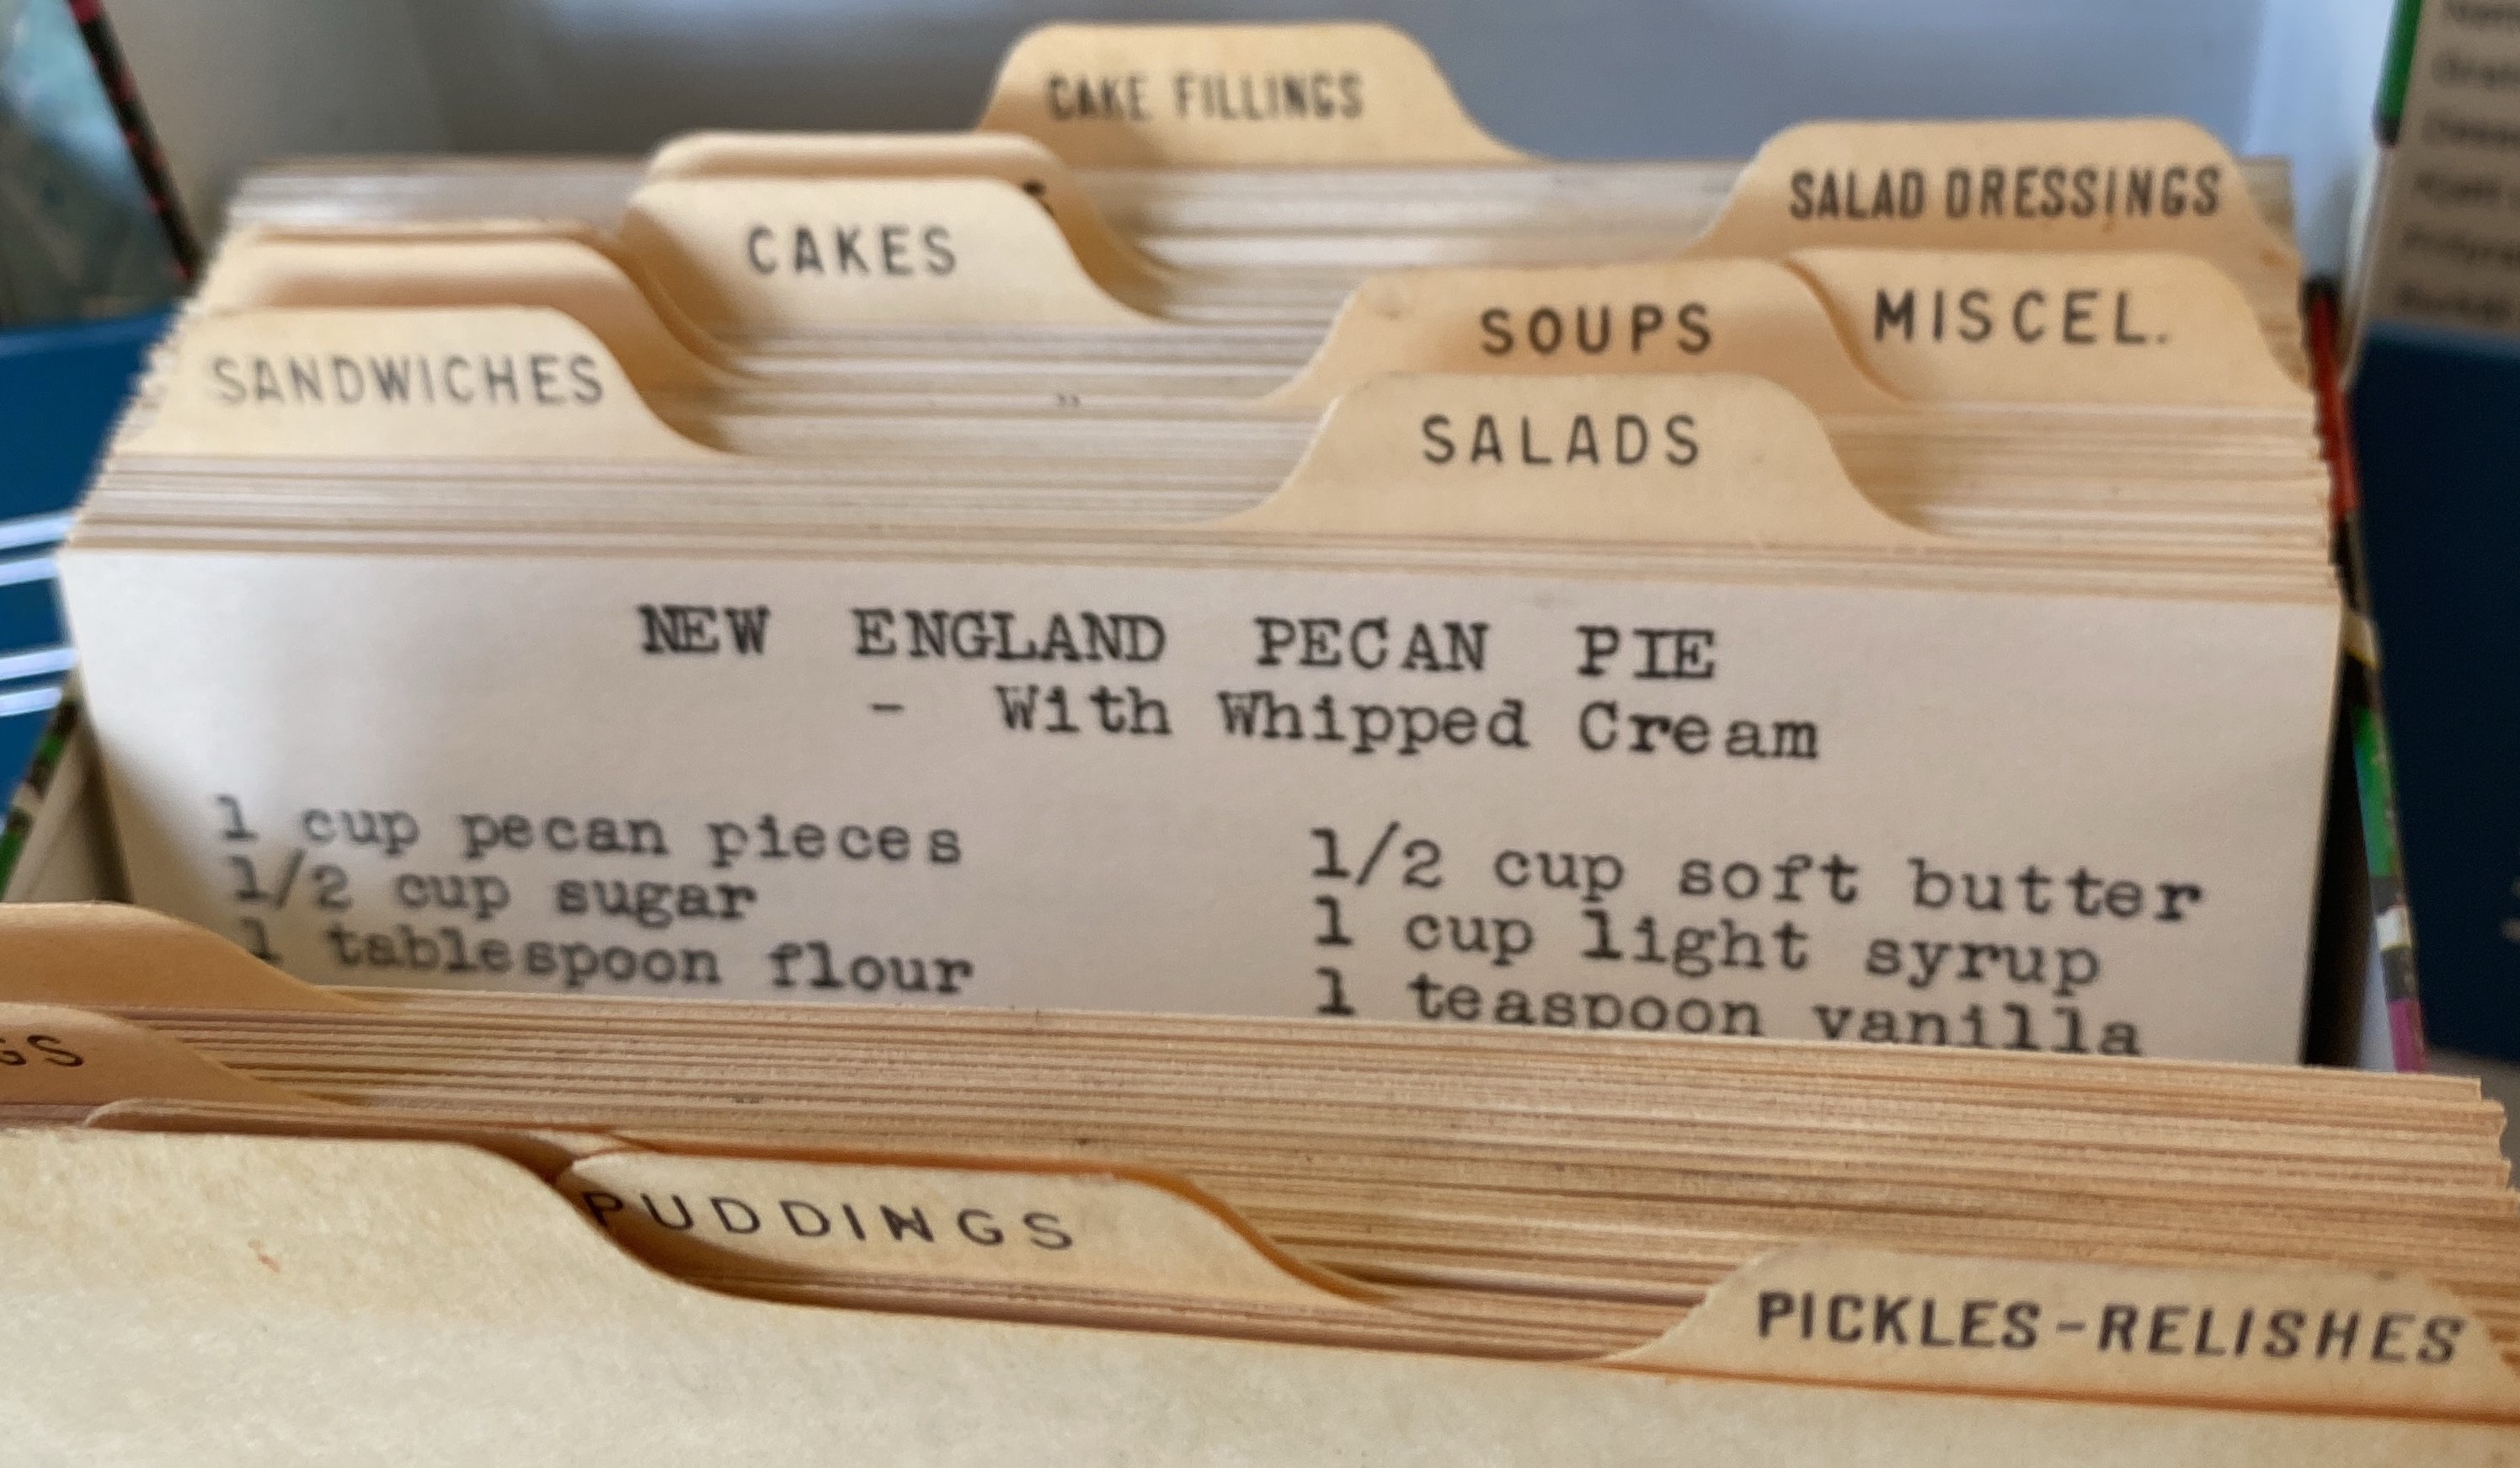 CAKE FILLINGS
SALAD DRESSINGS
CAKES
MISCEL.
SOUPS
SANDWICHES
SALADS
NEW ENGLAND PECAN PIE
- With Whipped Cream
1 cup pecan pieces
1/2 cup sugar
1 tablespoon flour
1/2 cup soft butter
1 cup light syrup
1 teaspoon vanilla
GS
PUDDINGS
PICKLES-RELISHES